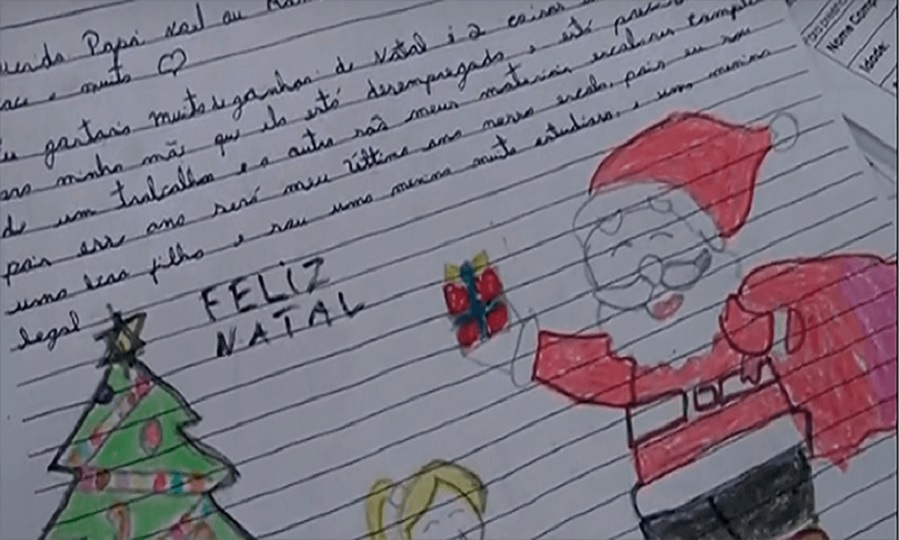 uerido Papai Noel eu
muito
Eu gostaria muito de ganhar de Natal é 2 coisas
minha mãe que ela está desempregada e está
de um trabalho e o outro são meus materiais escolares
pois esse ano será meu último ano nessa escola, pois eu sou
uma boa filha e sou uma menina muito estudiosa, e uma menina
legal
FELIZ
NATAL
Nome Comp
Idade: